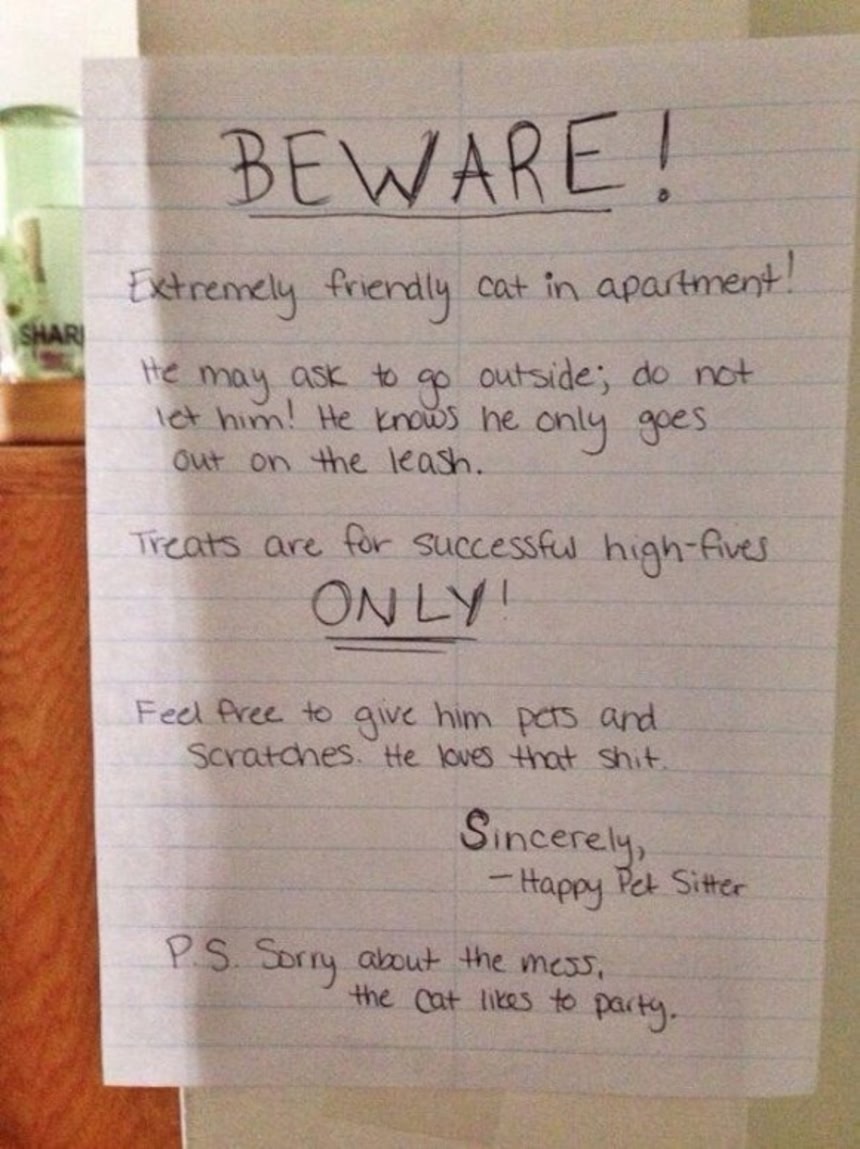 BEWARE!
Extremely friendly cat in apartment!
He may ask to go outside; do not
let him! He knows he only goes
out on the leash.
Treats are for successful high-fives
ONLY!
Feel free to give him pets and
scratches. He loves that shit.
Sincerely,
- Happy Pet Sitter
P.S. Sorry about the mess,
the cat likes to party.
SHAR